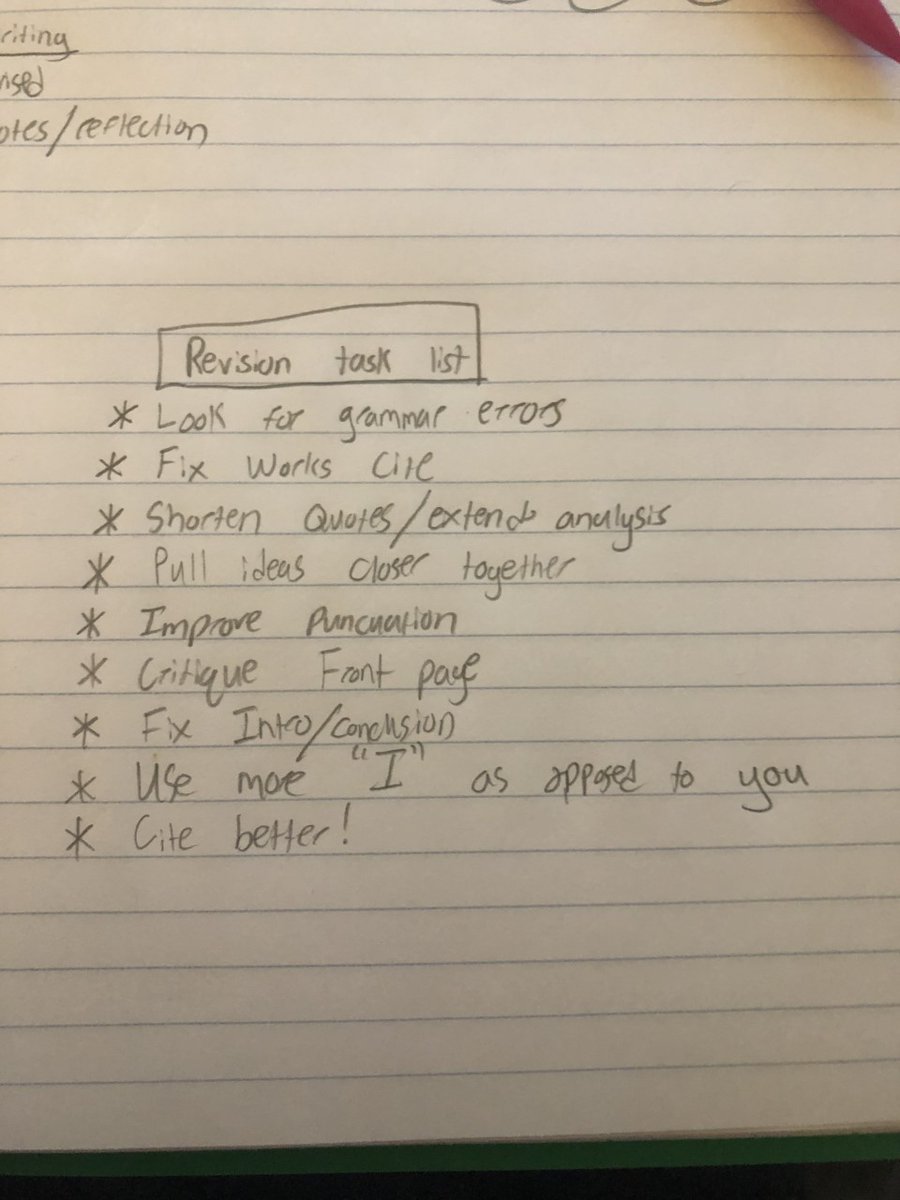 riting
ised
otes/reflection
Revision task list
* Look for grammar errors
* Fix Works Cite
* Shorten Quotes/extend analysis
* Pull ideas closer together
* Improve Puncuation
* Critique Front page
* Fix Intro/conclusion
* Use more "I" as opposed to you
* Cite better!